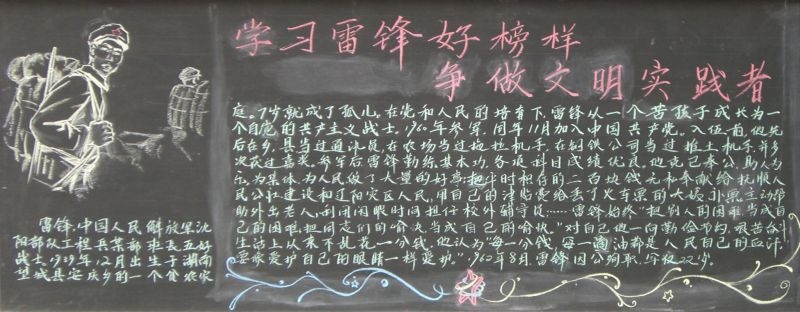 学习雷锋好榜样
争做文明实践者
雷锋,中国人民解放军沈
阳部队工程兵某部班长五好
战士,1939年12月出生于湖南
望城县安庆乡的一个贫农家
庭。7岁就成了孤儿。在党和人民的培育下,雷锋以一个苦孩子成长为一
个自觉的共产主义战士。1960年参军,同年11月加入中国共产党。入伍前,他先
后在乡、县当过通讯员,在农场当过拖拉机手,在制铁公司当过推土机手,并多
次获过嘉奖。参军后雷锋勤练基本功,各项科目成绩优良,他克己奉公,助人为
乐,为集体为人民做了大量的好事,把平时积存的二百块钱无市奉献给抚顺人
民公社建设和辽阳灾区人民,用自己的津贴费给丢了火车票的大嫂补票,主动帮
助外出老人,利闭闲暇时间担任校外辅导员……雷锋始终"把别人的困难,当成自
己的困难,把同志们的愉快,当成自己的愉快。"对自己他一向勤俭节约,艰苦奋斗
生活上从来不乱花一分钱,他认为"每一分钱,每一滴油都是人民自己的血汗,
要象爱护自己的眼睛一样爱护。"1960年8月,雷锋因公殉职,年仅22岁。